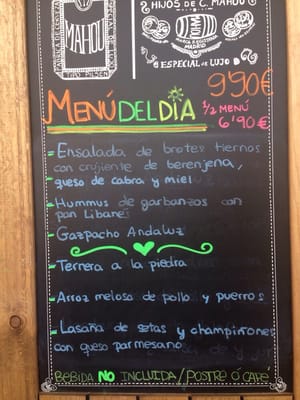 HIJOS DE C. MAHOU
MAHOU
TIPO PILSEN
MADRID
ESPECIAL DE LUJO
9'90€
MENÚ DEL DÍA
1/2 MENÚ
6'90€
- Ensalada de brotes tiernos
con crujiente de berenjena,
queso de cabra y miel
- Hummus de garbanzos con
pan Libanes
- Gazpacho Andaluz
- Ternera a la piedra
- Arroz meloso de pollo y puerros
- Lasaña de setas y champiñones
con queso parmesano
BEBIDA NO INCLUIDA / POSTRE Ó CAFÉ